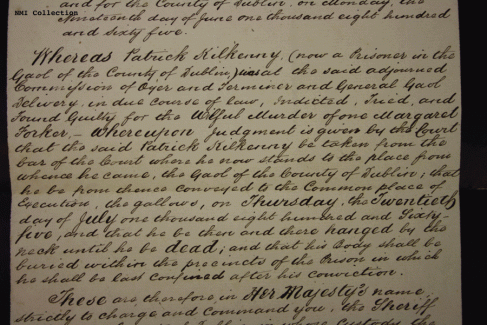 NMI Collection
and for the County of Dublin, on Monday, the
Nineteenth day of June one thousand eight hundred
and sixty five.
Whereas Patrick Kilkenny, (now a Prisoner in the
Gaol of the County of Dublin) was at the said adjourned
Commission of Oyer and Terminer and General Gaol
Delivery, in due course of law, Indicted, Tried, and
Found Guilty for the Wilful Murder of one Margaret
Forker, – Whereupon Judgment is given by the Court
that the said Patrick Kilkenny be taken from the
bar of the Court where he now stands to the place from
whence he came, the Gaol of the County of Dublin, that
he be from thence conveyed to the Common place of
Execution, the gallows, on Thursday, the Twentieth
day of July one thousand eight hundred and Sixty-
five, and that he be then and there hanged by the
neck until he be dead; and that his Body shall be
buried within the precincts of the Prison in which
he shall be last confined after his conviction.
These are, therefore, in Her Majesty's name,
strictly to charge and Command you, the Sheriff
in whose custody the